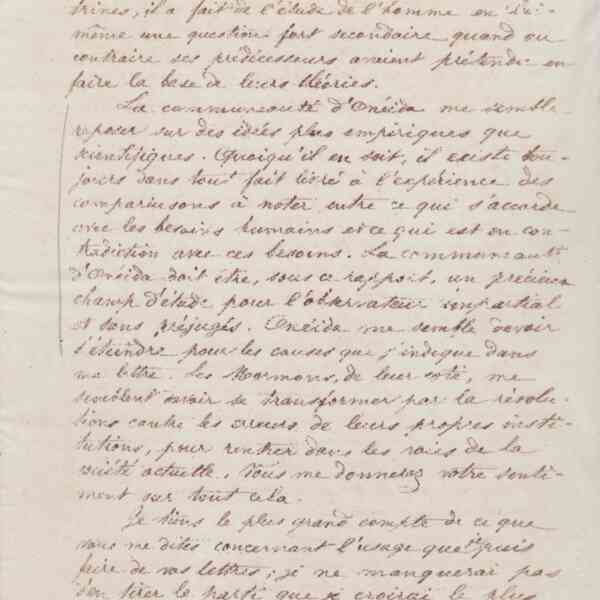 trines, il a fait de l'étude de l'homme en lui-
même une question fort secondaire quand au
contraire ses prédécesseurs avaient prétendu en
faire la base de leurs théories.
La communauté d'Onéida me semble
reposer sur des idées plus empiriques que
scientifiques. Quoiqu'il en soit, il existe tou-
jours dans tout fait livré à l'expérience des
comparaisons à noter entre ce qui s'accorde
avec les besoins humains et ce qui est en con-
tradiction avec ces besoins. La communauté
d'Onéida doit être, sous ce rapport, un précieux
champ d'étude pour l'observateur impartial
et sans préjugés. Onéida me semble devoir
s'éteindre pour les causes que j'indique dans
ma lettre. Les Mormons, de leur côté, me
semblent devoir se transformer par la révolu-
tions contre les erreurs de leurs propres insti-
tutions, pour rentrer dans les voies de la
société actuelle. Vous me donnerez votre senti-
ment sur tout cela.
Je tiens le plus grand compte de ce que
vous me dites concernant l'usage que je puis
faire de vos lettres ; je ne manquerai pas
d'en tirer le parti que je croirai le plus